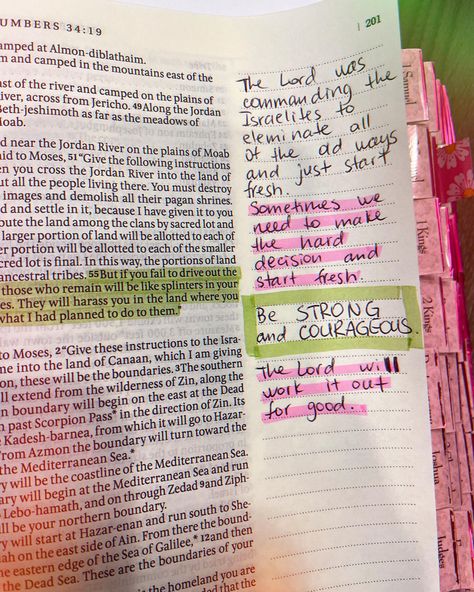 UMBERS 34:19
201
amped at Almon-diblathaim.
m and camped in the mountains east of the
ast of the river and camped on the plains of
iver, across from Jericho. 49Along the Jordan
Beth-jeshimoth as far as the meadows of
Moab.
d near the Jordan River on the plains of Moab
aid to Moses, 51“Give the following instructions
en you cross the Jordan River into the land of
ut all the people living there. You must destroy
images and demolish all their pagan shrines.
d and settle in it, because I have given it to you
bute the land among the clans by sacred lot and
larger portion of land will be allotted to each of
er portion will be allotted to each of the smaller
cred lot is final. In this way, the portions of land
ancestral tribes. 55But if you fail to drive out the
those who remain will be like splinters in your
es. They will harass you in the land where you
what I had planned to do to them.”
to Moses, 2“Give these instructions to the Isra-
me into the land of Canaan, which I am giving
on, these will be the boundaries. 3The southern
ll extend from the wilderness of Zin, along the
n boundary will begin on the east at the Dead
h past Scorpion Pass* in the direction of Zin. Its
e Kadesh-barnea, from which it will go to Hazar-
From Azmon the boundary will turn toward the
the Mediterranean Sea.*
y will be the coastline of the Mediterranean Sea.
ary will begin at the Mediterranean Sea and run
o Lebo-hamath, and on through Zedad 9and Ziph-
ll be your northern boundary.
y will start at Hazar-enan and run south to She-
ah on the east side of Ain. From there the bound-
eastern edge of the Sea of Galilee,* 12and then
the Dead Sea. These are the boundaries of your
s the homeland you are
ded that the
The Lord was
commanding the
Israelites to
eleminate all
of the old ways
and just start
fresh.
Sometimes we
need to make
the hard
decision and
start fresh.
Be STRONG
and COURAGEOUS.
The Lord will
work it out
for good.
1 Samuel
1 Kings
2 Kings
Joshua
Judges